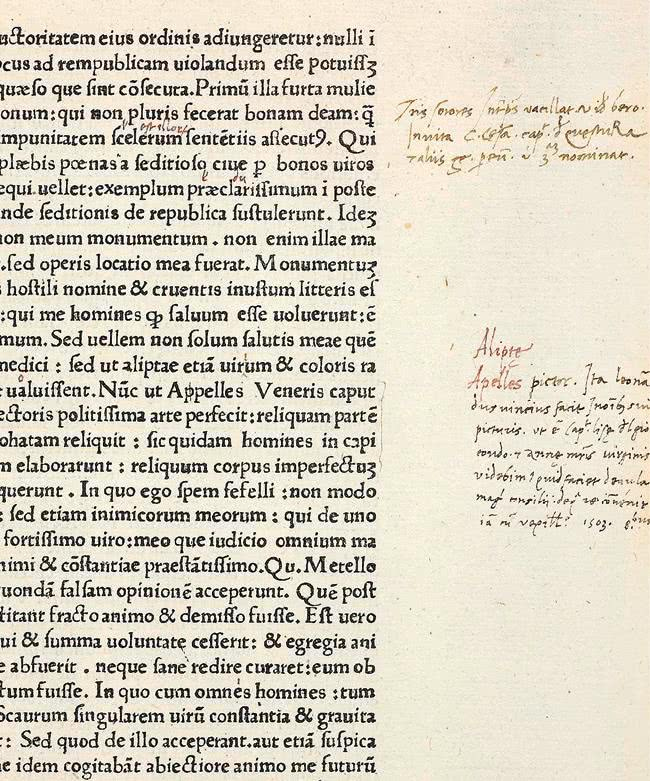 uctoritatem eius ordinis adiungeretur:nulli ī
ocus ad rempublicam uiolandum esse potuissꝫ
quæso que sint cōsecuta.Primū illa furta mulie
onum:qui non pluris fecerat bonam deam:q̄
impunitatem scelerum sentētiis assecutꝰ. Qui
plæbis pœnas a seditioso ciue ꝑ bonos uiros
equi uellet:exemplum præclarissimum ī poste
nde seditionis de republica sustulerunt. Idēꝫ
non meum monumentum . non enim illae ma
.sed operis locatio mea fuerat. Monumentuꝫ
s hostili nomine & cruentis inustum litteris es
:qui me homines ꝙ saluum esse uoluerunt:ē
mum. Sed uellem non solum salutis meae quē
medici : sed ut aliptae etiā uirium & coloris ra
e ualuissent.Nūc ut Appelles Veneris caput
ectoris politissima arte perfecit:reliquam partē
ohatam reliquit : sic quidam homines in capi
m elaborarunt : reliquum corpus imperfectuꝫ
querunt . In quo ego spem fefelli :non modo
: sed etiam inimicorum meorum : qui de uno
fortissimo uiro:meo que iudicio omnium ma
nimi & cōstantiae praestātissimo.Qu.Metello
uondā falsam opinionē acceperunt. Quē post
titant fracto animo & demisso fuisse. Est uero
qui & summa uoluntate cesserit: & egregia ani
e abfuerit . neque sane redire curaret:eum ob
tum fuisse. In quo cum omnes homines :tum
Scaurum singularem uirū constantia & grauita
t: Sed quod de illo acceperant.aut etiā suspica
ne idem cogitabāt abiectiore animo me futurū
Tris sorores
nominat.
Alipte
Apelles pictor. Ita leona
dus vincius facit
picturis. ut ē
virginis
videbimus quid faciet de aula
magni consilii
1503.